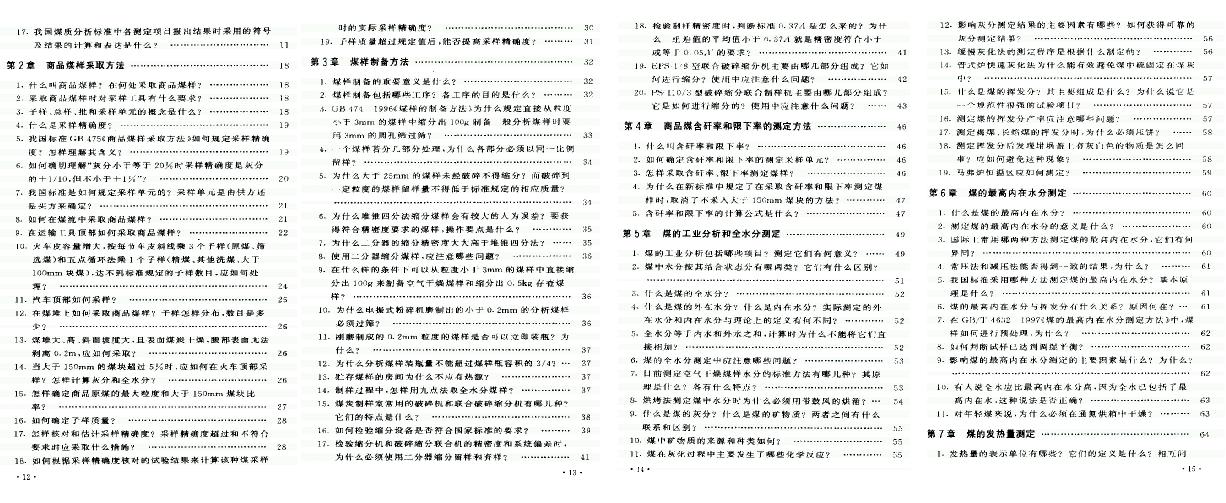 17. 我国煤质分析标准中各测定项目报出结果时采用的符号
及结果的计算和表达是什么? 11
第2章 商品煤样采取方法 18
1. 什么叫商品煤样? 在何处采取商品煤样? 18
2. 采取商品煤样时对采样工具有什么要求? 18
3. 子样、总样、批和采样单元的概念是什么? 18
4. 什么是采样精确度? 19
5. 我国标准GB 475《商品煤样采取方法》如何规定采样精确
度? 怎样理解其含义? 19
6. 如何确切理解"灰分小于等于20%时采样精确度是灰分
的±1/10,但不小于±1%"? 20
7. 我国标准是如何规定采样单元的? 采样单元是由供方还
是买方来确定? 21
8. 如何在煤流中采取商品煤样? 21
9. 在运输工具顶部如何采取商品煤样? 22
10. 火车皮容量增大,按每节车皮斜线乘3个子样(原煤、筛
选煤)和五点循环法乘1个子样(精煤、其他洗煤、大于
100mm块煤),达不到标准规定的子样数目,应如何处
理? 24
11. 汽车顶部如何采样? 25
12. 在煤堆上如何采取商品煤样? 子样怎样分布,数目是多
少? 26
13. 煤堆大、高、斜面坡度大,且表面煤炭干燥、腰部表面无法
剥离0.2m,应如何采取? 26
14. 当大于150mm的煤块超过5%时,应如何在火车顶部采
样? 怎样计算灰分和全水分? 26
15. 怎样确定商品原煤的最大粒度和大于150mm煤块比
率? 27
16. 如何确定子样质量? 28
17. 怎样核对和估计采样精确度? 采样精确度超过和不符合
要求时应采取什么措施? 28
18. 如何根据采样精确度核对的试验结果来计算该种煤采样
· 12 ·
时的实际采样精确度? 30
19. 子样质量超过规定值后,能否提高采样精确度? 31
第3章 煤样制备方法 32
1. 煤样制备的重要意义是什么? 32
2. 煤样制备包括哪些工序? 各工序的目的是什么? 32
3. GB 474—1996《煤样的制备方法》为什么规定直接从粒度
小于3mm的煤样中缩分出100g制备一般分析煤样时要
用3mm的圆孔筛过筛? 33
4. 一个煤样若分几部分处理,为什么各部分必须以同一比例
留样? 34
5. 为什么大于25mm的煤样未经破碎不得缩分? 而破碎到
一定粒度的煤样留样量不得低于标准规定的相应质量?
34
6. 为什么堆锥四分法缩分煤样会有较大的人为误差? 要获
得符合精密度要求的煤样,操作要点是什么? 35
7. 为什么二分器的缩分精密度大大高于堆锥四分法? 35
8. 使用二分器缩分煤样,应注意哪些问题? 35
9. 在什么样的条件下可以从粒度小于3mm的煤样中直接缩
分出100g来制备空气干燥煤样和缩分出0.5kg存查煤
样? 36
10. 为什么电振式粉碎机磨制出的小于0.2mm的分析煤样
必须过筛? 36
11. 刚磨制成的0.2mm粒度的煤样是否可以立即装瓶? 为
什么? 37
12. 为什么分析煤样装瓶量不能超过煤样瓶容积的3/4? 37
13. 贮存煤样的房间为什么不应有热源? 37
14. 制样过程中,怎样用九点法取全水分煤样? 37
15. 煤炭制样室常用的破碎机和联合破碎缩分机有哪几种?
它们的特点是什么? 38
16. 如何检验缩分设备是否符合国家标准的要求? 39
17. 检验缩分机和破碎缩分联合机的精密度和系统偏差时,
为什么必须使用二分器缩分留样和弃样? 41
· 13 ·
18. 检验制样精密度时,判断标准0.37A是怎么来的? 为什
么一组差值的平均值小于0.37A就是精密度符合小于
或等于0.05A的要求? 41
19. EPS-1/8型联合破碎缩分机主要由哪几部分组成? 它如
何进行缩分? 使用中应注意什么问题? 42
20. PS-10/3型破碎缩分联合制样机主要由哪几部分组成?
它是如何进行缩分的? 使用中应注意什么问题? 43
第4章 商品煤含矸率和限下率的测定方法 46
1. 什么叫含矸率和限下率? 46
2. 如何确定含矸率和限下率的测定采样单元? 46
3. 怎样采取含矸率、限下率测定煤样? 46
4. 为什么在新标准中规定了在采取含矸率和限下率测定煤
样时,取消了不采入大于150mm煤块的方法? 47
5. 含矸率和限下率的计算公式是什么? 47
第5章 煤的工业分析和全水分测定 49
1. 煤的工业分析包括哪些项目? 测定它们有何意义? 49
2. 煤中水分按其结合状态分有哪两类? 它们有什么区别?
51
3. 什么是煤的全水分? 52
4. 什么是煤的外在水分? 什么是内在水分? 实际测定的外
在水分和内在水分与理论上的定义有何不同? 52
5. 全水分等于内水和外水之和,计算时为什么不能将它们直
接相加? 52
6. 煤的全水分测定中应注意哪些问题? 53
7. 目前测定空气干燥煤样水分的标准方法有哪几种? 其原
理是什么? 各有什么特点? 53
8. 烘烤法测定煤中水分时为什么必须用带鼓风的烘箱? 54
9. 什么是煤的灰分? 什么是煤的矿物质? 两者之间有什么
联系和区别? 55
10. 煤中矿物质的来源和种类如何? 55
11. 煤在灰化过程中主要发生了哪些化学反应? 55
· 14 ·
12. 影响灰分测定结果的主要因素有哪些? 如何获得可靠的
灰分测定结果? 56
13. 缓慢灰化法的测定程序是根据什么制定的? 56
14. 管式炉快速灰化法为什么能有效避免煤中硫固定在煤灰
中? 57
15. 什么是煤的挥发分? 其主要组成是什么? 为什么说它是
一个规范性很强的试验项目? 57
16. 测定煤的挥发分产率应注意哪些问题? 57
17. 测定褐煤、长焰煤的挥发分时,为什么必须压饼? 58
18. 测定挥发分后发现坩埚盖上有灰白色的物质是怎么回
事? 应如何避免这种现象? 58
19. 马弗炉恒温区应如何测定? 59
第6章 煤的最高内在水分测定 60
1. 什么是煤的最高内在水分? 60
2. 测定煤的最高内在水分的意义是什么? 60
3. 国际上常用哪两种方法测定煤的最高内在水分,它们有何
异同? 60
4. 常压法和减压法能否得到一致的结果,为什么? 61
5. 我国标准采用哪种方法测定煤的最高内在水分? 基本原
理是什么? 61
6. 煤的最高内在水分与挥发分有什么关系? 原因何在? 61
7. 在GB/T 4632—1997《煤的最高内在水分测定方法》中,煤
样如何进行预处理,为什么? 62
8. 如何判断试样已达到湿度平衡? 62
9. 影响煤的最高内在水分测定的主要因素是什么? 为什么?
62
10. 有人说全水应比最高内在水分高,因为全水已包括了最
高内在水,这种说法是否正确? 63
11. 对年轻煤来说,为什么必须在通氮烘箱中干燥? 63
第7章 煤的发热量测定 64
1. 发热量的表示单位有哪些? 它们的定义是什么? 相互间
· 15 ·